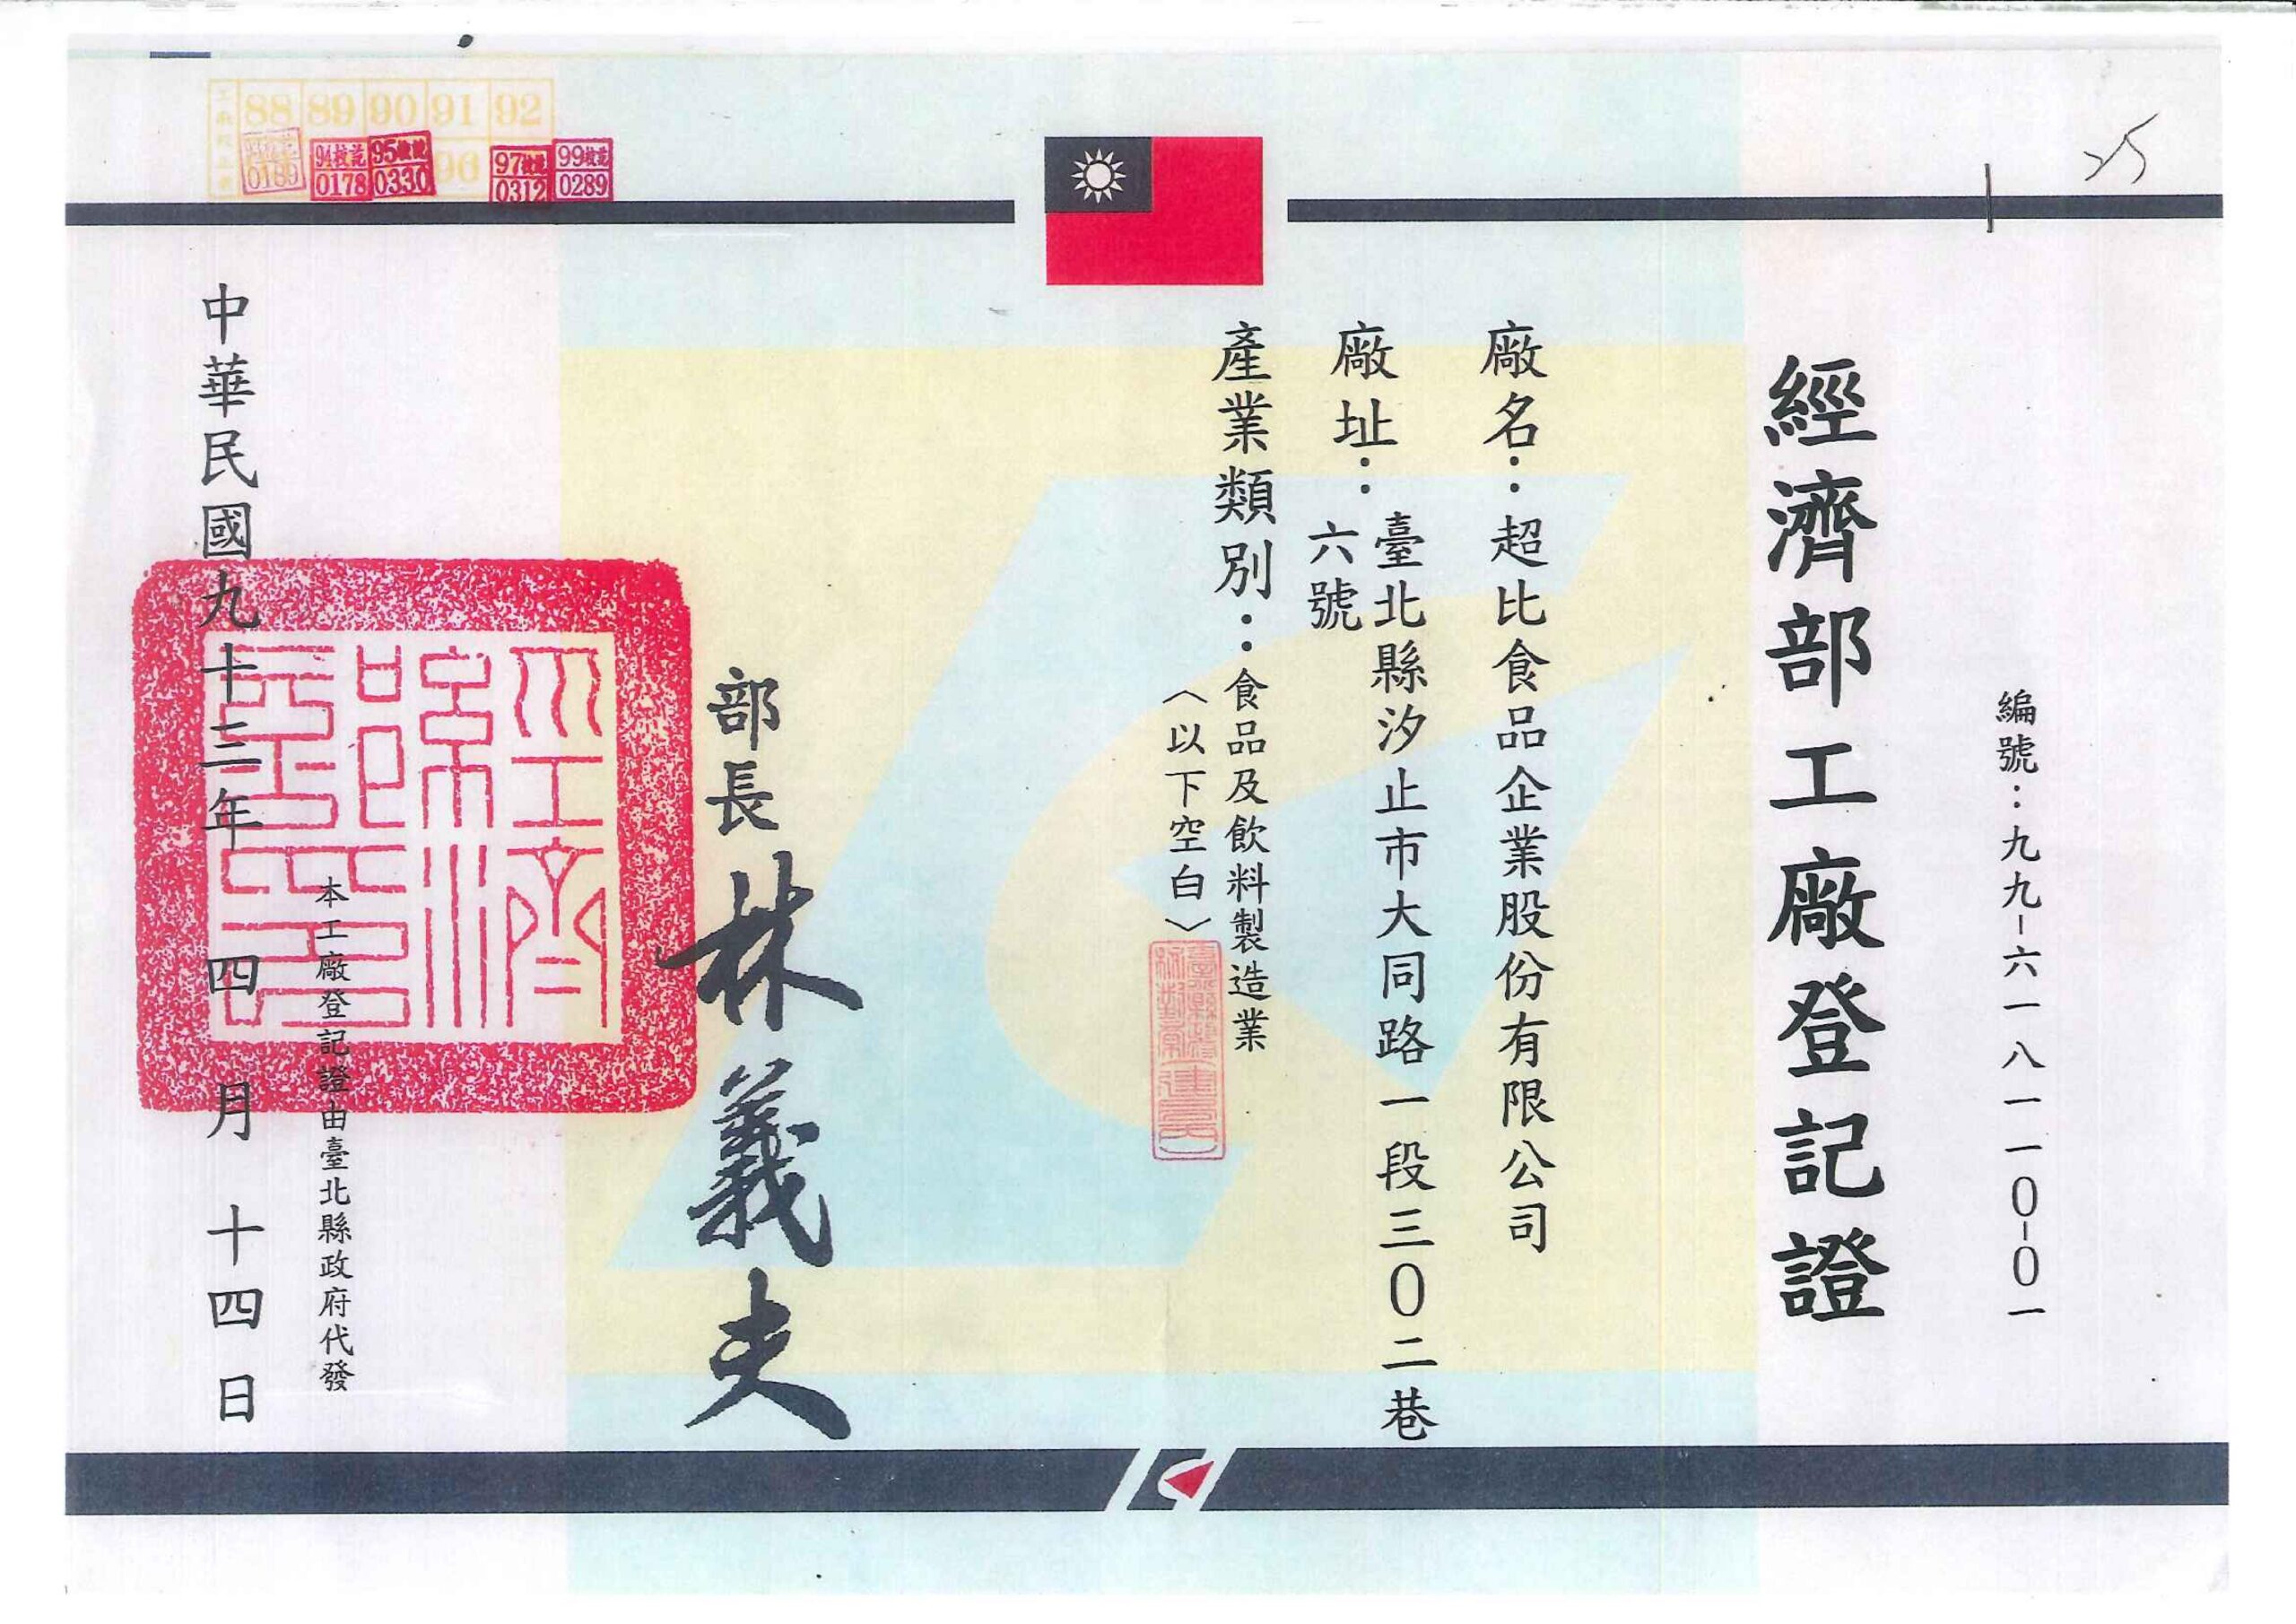 編號：九九-六一八一一0-0一
經濟部工廠登記證
廠名：超比食品企業股份有限公司
廠址：臺北縣汐止市大同路一段三0二巷
六號
產業類別：食品及飲料製造業
〈以下空白〉
部長 林義夫
本工廠登記證由臺北縣政府代發
中華民國九十三年 四 月 十四日
88 89 90 91 92
96
0189
94校訖
0178
95校訖
0330
97校訖
0312
99校訖
0289
經濟部印
25